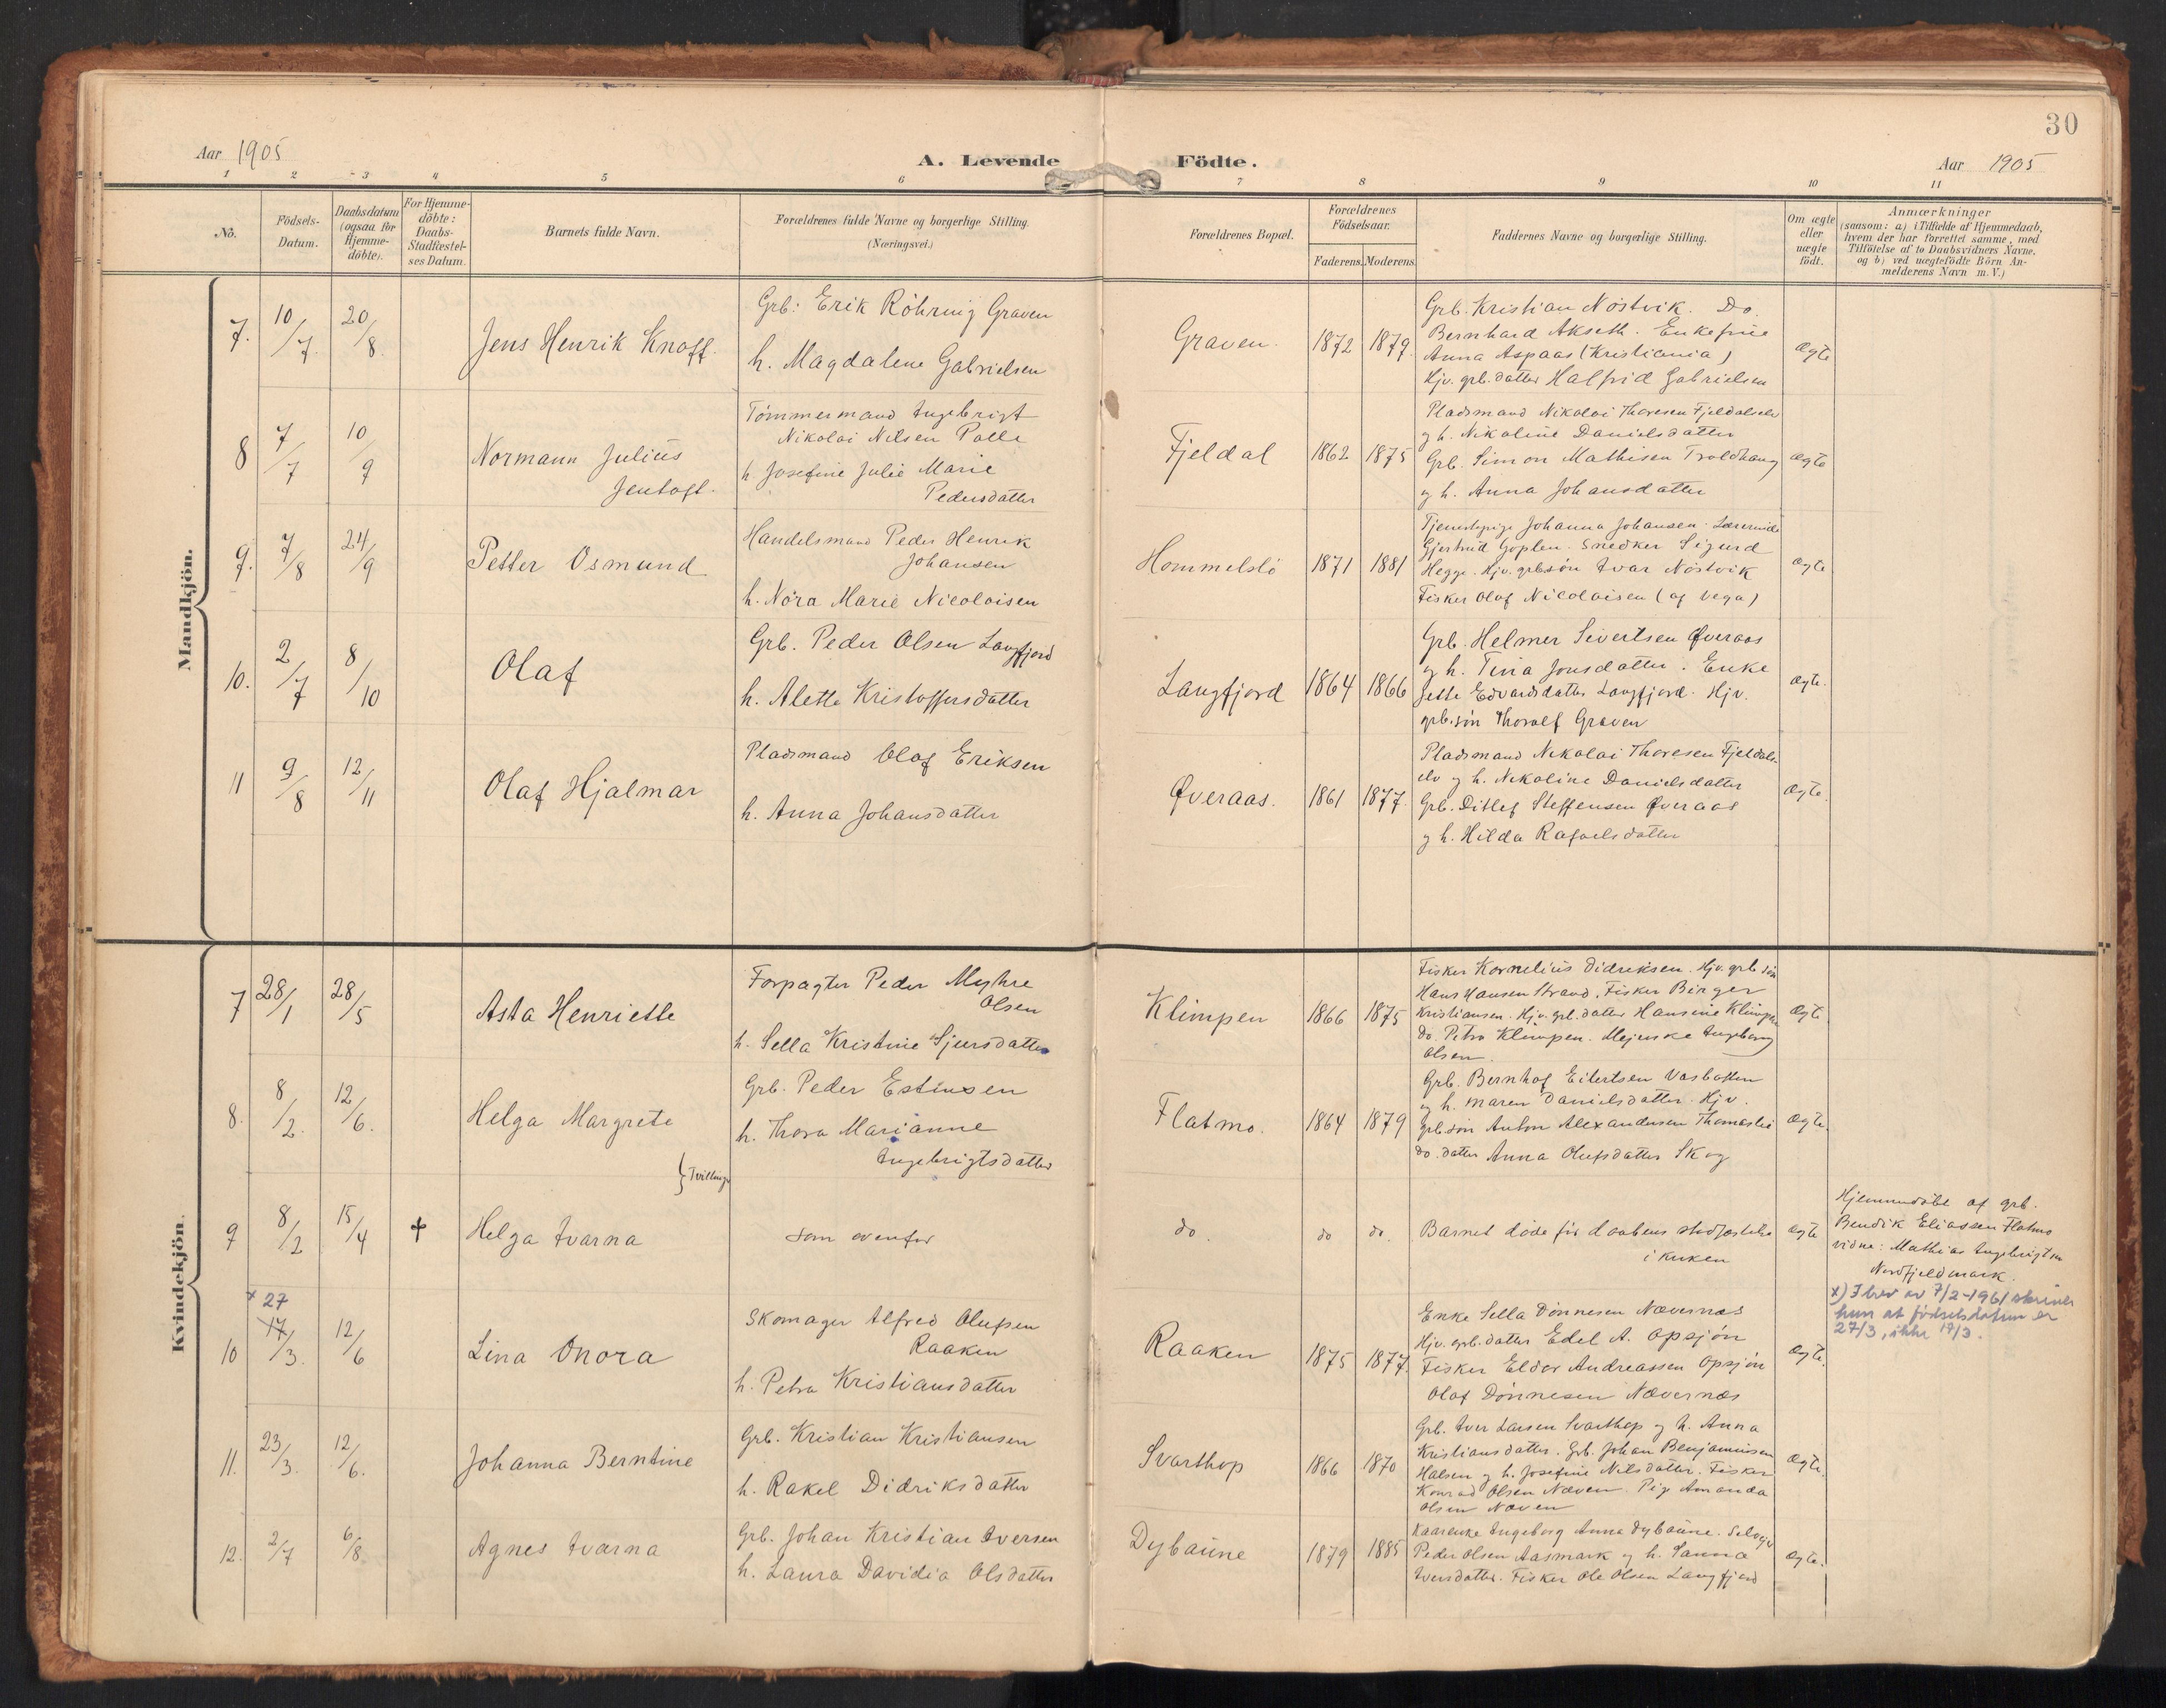 30
Aar 1905
A. Levende Födte.
Aar 1905
1 2 3 4 5 6 7 8 9 10 11
No.
Födsels-
Datum.
Daabsdatum
(ogsaa for
Hjemme-
döbte).
For Hjemme-
döbte:
Daabs-
Stadfæstel-
ses Datum.
Barnets fulde Navn.
Forældrenes fulde Navne og borgerlige Stilling.
(Næringsvei.)
Forældrenes Bopæl.
Forældrenes
Födselsaar.
Faderens. Moderens.
Faddernes Navne og borgerlige Stilling.
Om ægte
eller
uægte
födt.
Anmærkninger
(saasom: a) i Tilfælde af Hjemmedaab,
hvem der har forrettet samme, med
Tilföielse af to Daabsvidners Navne.
og b) ved uægtefödte Börn An-
melderens Navn m. V.)
Mandkjön.
7. 10/7. 20/8. Jens Henrik Knoff.
Grb: Erik Röhring Graven
h. Magdalene Gabrielsen
Graven. 1872 1879.
Grb. Kristian Nöstvik. Do.
Bernhard Akseth. Enkefrue
Anna Aspaas (Kristiania)
Hjv. grb. datter Halfrid Gabrielsen
ægte
8 7/7 10/9 Normann Julius
Jentoft.
Tömmermand Ingebrigt
Nikolai Nilsen Palle
h Josefine Julie Marie
Pedersdatter
Fjeldal 1862 1875
Pladsmand Nikolai Thoresen Fjeldalselv
og h. Nikoline Danielsdatter
Grb. Simon Mathisen Troldhaug
og h. Anna Johansdatter
ægte
9. 7/8 24/9 Petter Osmund
Handelsmand Peder Henrik
Johansen
h. Nora Marie Nicolaisen
Hommelslö 1871 1881
Tjenestepige Johanna Johansen. Lærerinde
Gjertrud Goplen. Snedker Sigurd
Hegge. Hjv. grb.sön Ivar Nöstvik
Fisker Olaf Nicolaisen (af Vega)
ægte
10. 2/7 8/10 Olaf
Grb. Peder Olsen Langfjord
h. Alette Kristoffersdatter
Langfjord 1864 1866
Grb. Helmer Sivertsen Øveraas
og h. Tina Jonsdatter. Enke
Jette Edvardsdatter Langfjord. Hjv.
grb.sön Thoralf Graven
ægte.
11 9/8 12/11 Olaf Hjalmar
Pladsmand Olaf Eriksen
h. Anna Johansdatter
Øveraas. 1861 1877.
Pladsmand Nikolai Thoresen Fjeldals-
elv og h. Nikoline Danielsdatter
Grb. Ditlef Steffensen Øveraas
og h. Hilda Rafaelsdatter
ægte.
Kvindekjön.
7 28/1 28/5 Asta Henriette
Forpagter Peder Myhre
Olsen
h. Sella Kristine Sjursdatter
Klimpen 1866 1875
Fisker Kornelius Didriksen. Hjv. grb. sön
Hans Hansen Strand. Fisker Birger
Kristiansen. Hjv. grb. datter Hansine Klimpen
do. Petra Klimpen. Mejerske Ingeborg
Olsen.
ægte
8. 8/2. 12/6. Helga Margrete
Grb. Peder Estinsen
h. Thora Marianne
Ingebrigtsdatter
Flatmo. 1864 1879
Grb. Bernhof Eilertsen Vasbotten
og h. Maren Danielsdatter. Hjv.
grb.sön Anton Alexandersen Thomaslie
do. datter Anna Olufsdatter Skog
ægte.
} Tvillinger
9 8/2 15/4 ✝ Helga Ivarna
som ovenfor
do. do do.
Barnet döde för daabens stadfæstelse
i kirken
ægte
Hjemmedöbt af grb.
Bendik Eliassen Flatmo
vidne: Mathias Ingebrigtsen
Nordfjeldmark.
x 27
10 17/3. 12/6 Lina Onora
Skomager Alfred Olufsen
Raaken
h. Petra Kristiansdatter
Raaken 1875 1877.
Enke Sella Dönnesen Nævernes
Hjv. grb. datter Edel A. Opsjön
Fisker Eldor Andreassen Opsjön
Olaf Dönnesen Nævernes
ægte.
x) I brev av 7/2-1961 skriver
hun at fødselsdatum er
27/3, ikke 17/3.
11. 23/3. 12/6. Johanna Berntine
Grb. Kristian Kristiansen
h. Rakel Didriksdatter
Svarthop 1866 1870
Grb. Iver Larsen Svarthop og h. Anna
Kristiansdatter. Grb. Johan Benjaminsen
Halsen og h. Josefine Nilsdatter. Fisker
Konrad Olsen Næven. Pige Amanda
Olsen Næven
ægte.
12. 2/7 6/8. Agnes Ivarna
Grb. Johan Kristian Iversen
h. Laura Davidia Olsdatter
Dybaune 1879 1885
Kaarenke Ingeborg Anna Dybaune. Selvejer
Peder Olsen Aasmark og h. Sanna
Iversdatter. Fisker Ole Olsen Langfjord
ægte.